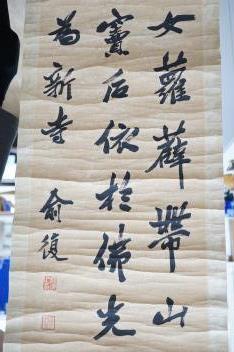 女蘿薜帶山
竇后依於佛光
為新寺
俞復